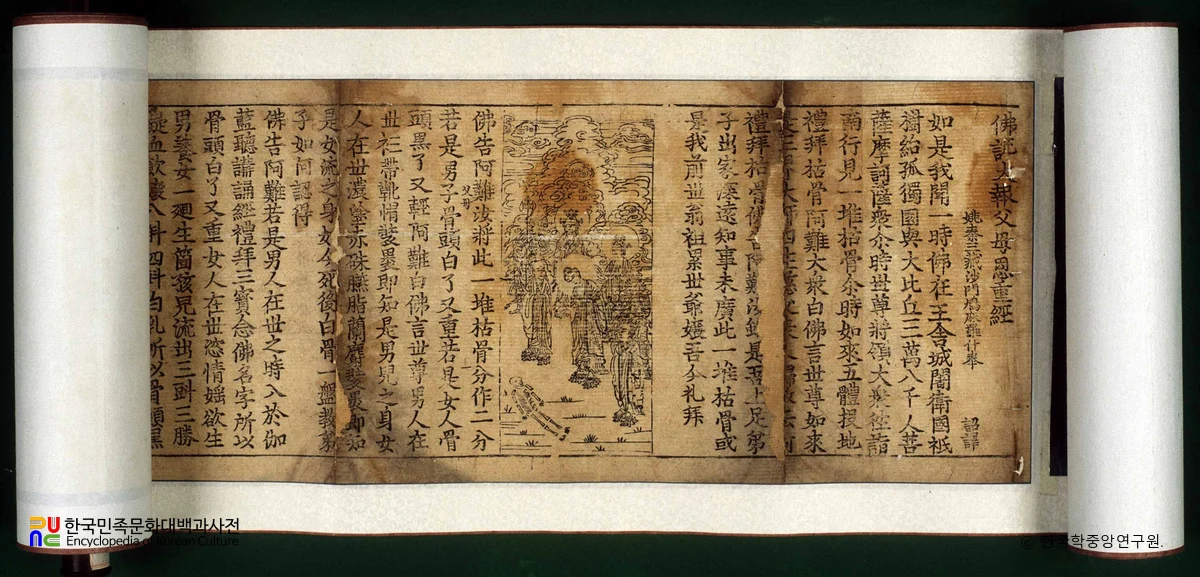 佛說大報父母恩重經
姚秦三藏沙門鳩摩羅什奉 詔譯
如是我聞一時佛在王舍城闍衛國祇
樹給孤獨園與大比丘三萬八千人菩
薩摩訶薩衆尒時世尊將領大衆往詣
南行見一堆枯骨尒時如來五體投地
禮拜枯骨阿難大衆白佛言世尊如來
禮拜枯骨佛告阿難汝雖是吾上足弟
子出家深遠知事未廣此一堆枯骨或
是我前世翁祖累世爺孃吾今礼拜
佛告阿難汝將此一堆枯骨分作二分
若是男子骨頭白了又重若是女人骨
頭黑了又輕阿難白佛言世尊男人在
世衫帶靴帽裝裹即知是男兒之身女
人在世濃塗赤硃臙脂蘭麝裝裹即知
是女流之身如今死後白骨一盤教弟
子如何認得
佛告阿難若是男人在世之時入於伽
藍聽講誦經禮拜三寶念佛名字所以
骨頭白了又重女人在世恣情婬欲生
男養女一廻生箇孩兒流出三㪷三勝
凝血飮孃八斛四斗白乳所以骨頭黑
한국민족문화대백과사전
Encyclopedia of Korean Culture
© 한국학중앙연구원.